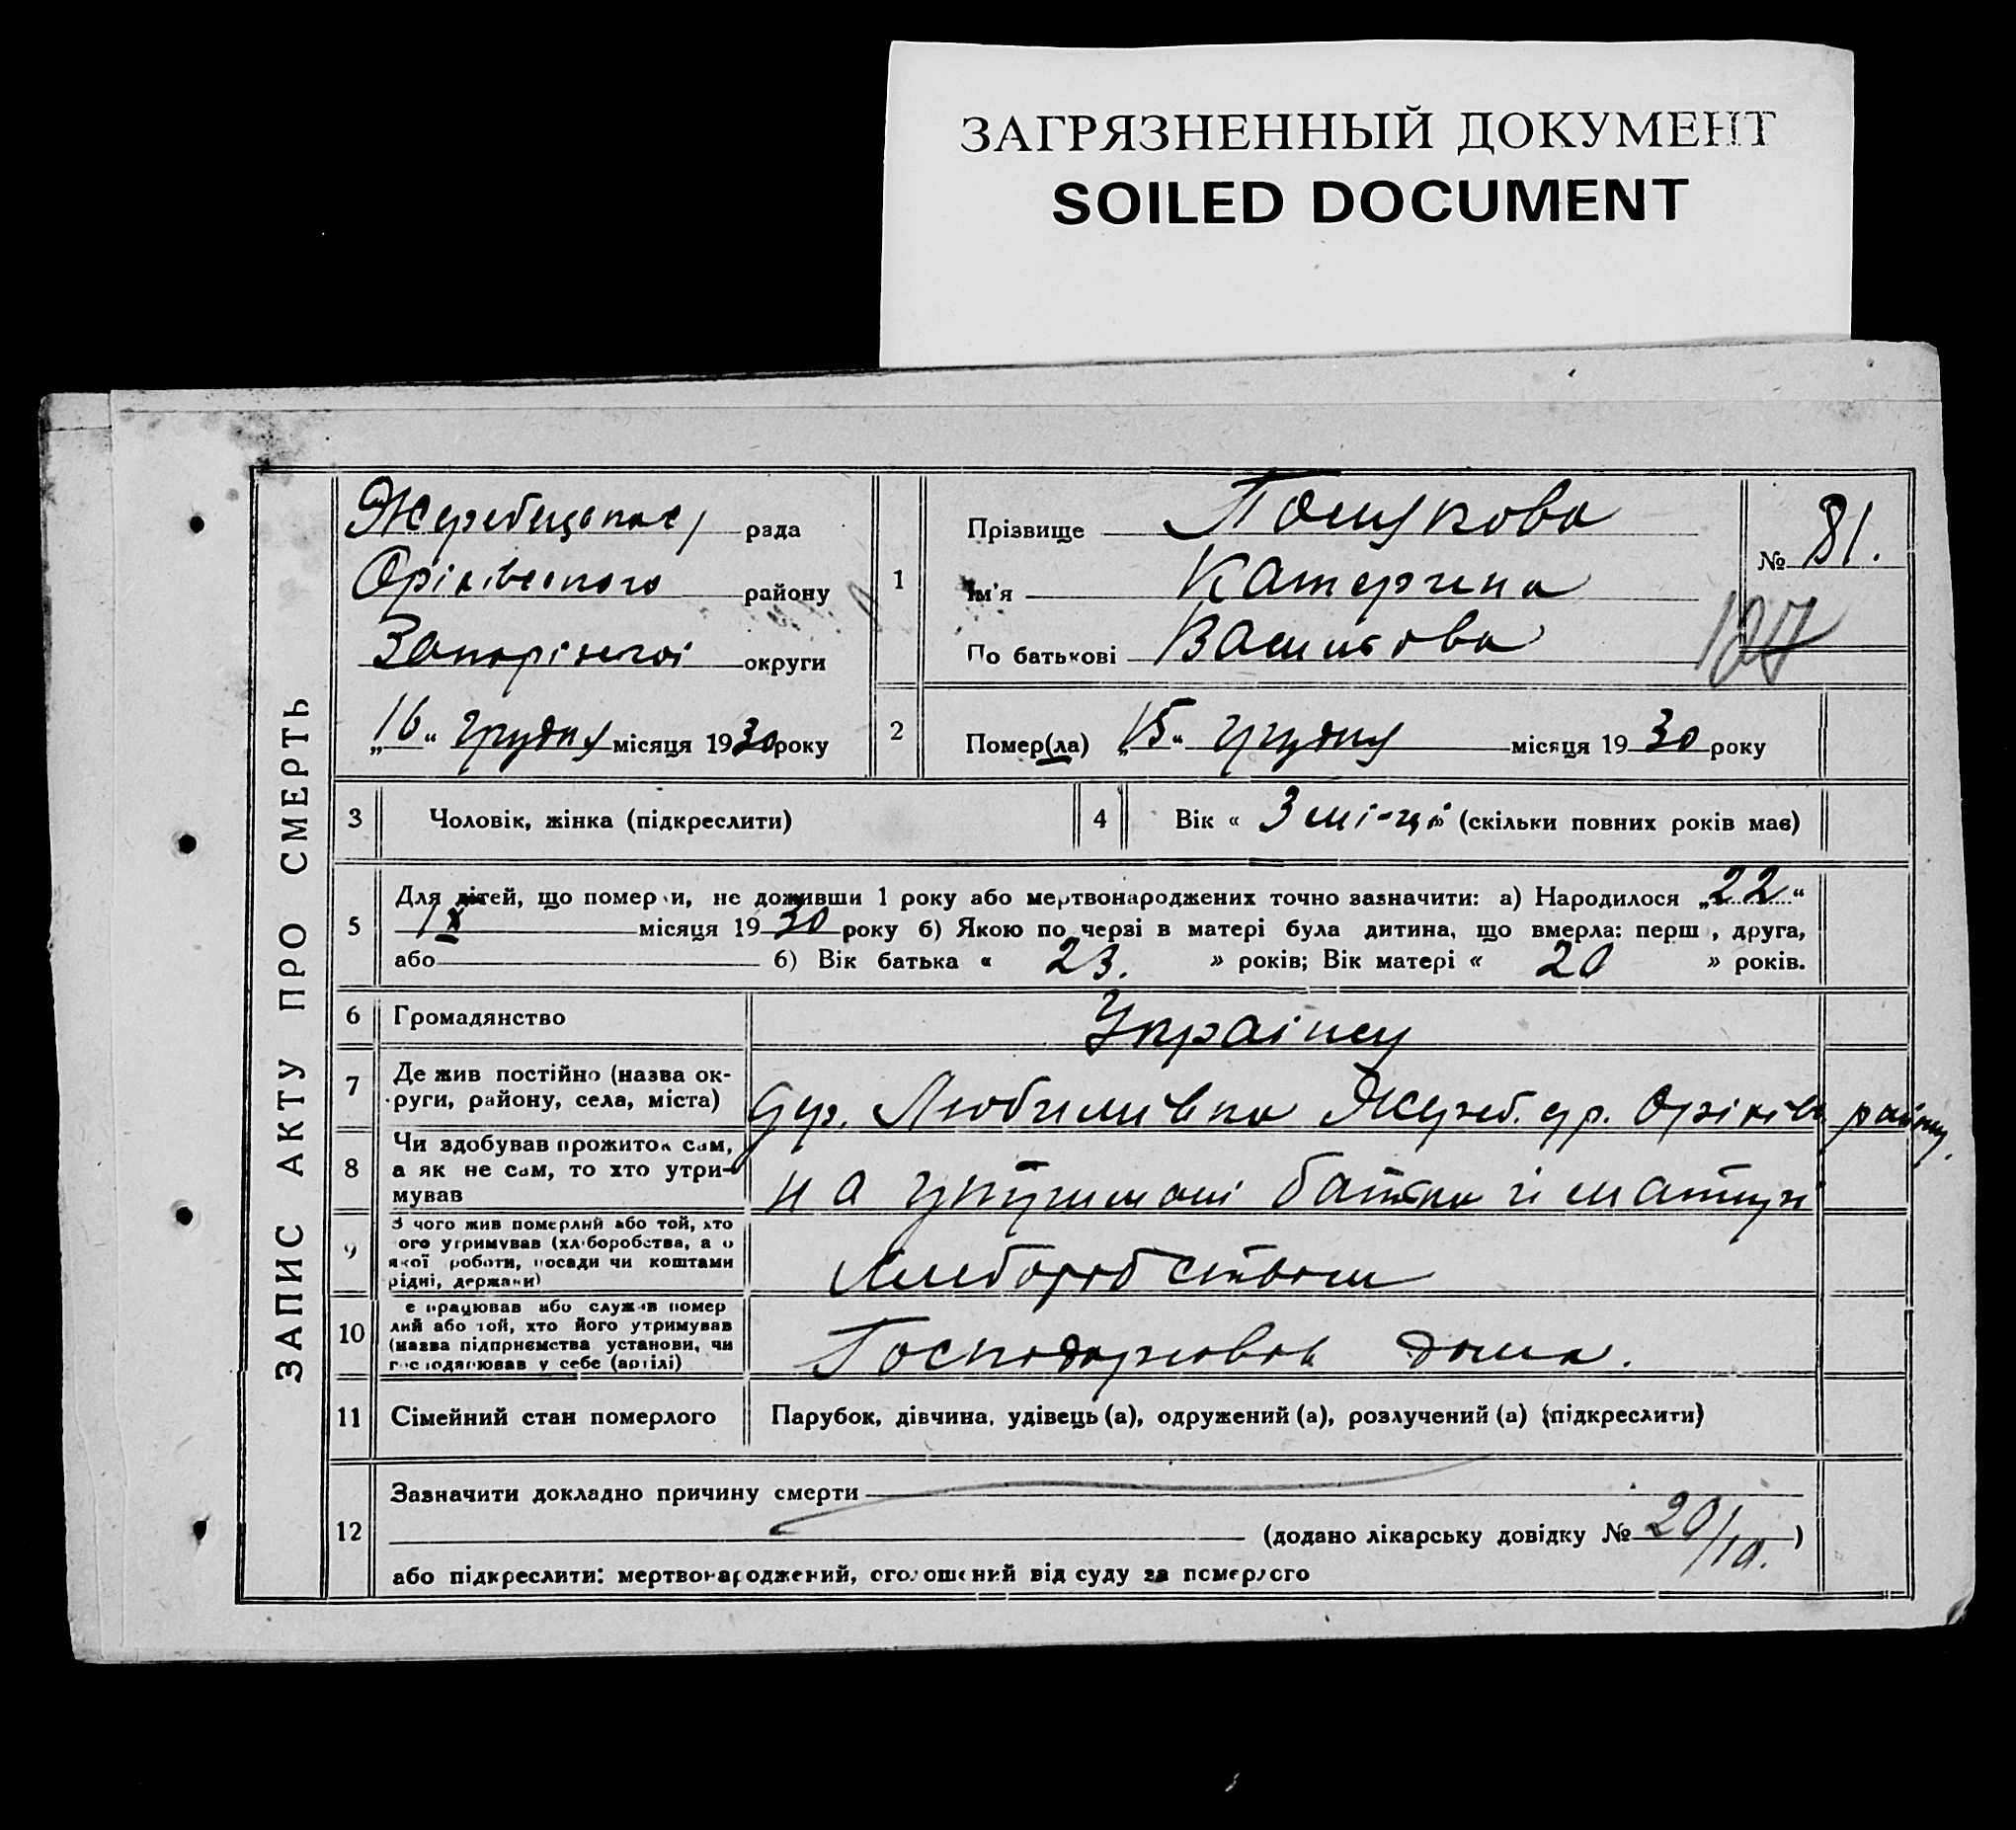 ЗАГРЯЗНЕННЫЙ ДОКУМЕНТ
SOILED DOCUMENT
ЗАПИС АКТУ ПРО СМЕРТЬ
рада
Оріхівського району
Запорізької округи
„16“ грудня місяця 1930 року
1
Прізвище
Ім'я Катерина
По батькові Васильовна
№ 81.
127
2
Помер(ла) „15“ грудня місяця 1930 року
3
Чоловік, жінка (підкреслити)
4
Вік « 3 мі-ці » (скільки повних років має)
5
Для дітей, що померли, не доживши 1 року або мертвонароджених точно зазначити: а) Народилося „22“
IX місяця 1930 року б) Якою по черзі в матері була дитина, що вмерла: перша, друга,
або б) Вік батька « 23. » років; Вік матері « 20 » років.
6
Громадянство
7
Де жив постійно (назва ок-
руги, району, села, міста)
дер. Любимівка Жереб. Оріхів. району.
8
Чи здобував прожиток сам,
а як не сам, то хто утри-
мував
на утриманні батька й матери
9
З чого жив померлий або той, хто
його утримував (хліборобства, а о
якої роботи, посади чи коштами
рідні, держави)
Хліборобством
10
Де працював або служив помер
лий або той, хто його утримував
(назва підприємства установи, чи
господарював у себе (артілі)
Господарював дома.
11
Сімейний стан померлого
Парубок, дівчина, удівець (а), одружений (а), розлучений (а) (підкреслити)
12
Зазначити докладно причину смерти
(додано лікарську довідку № 20/10.)
або підкреслити: мертвонароджений, оголошений від суду за померлого